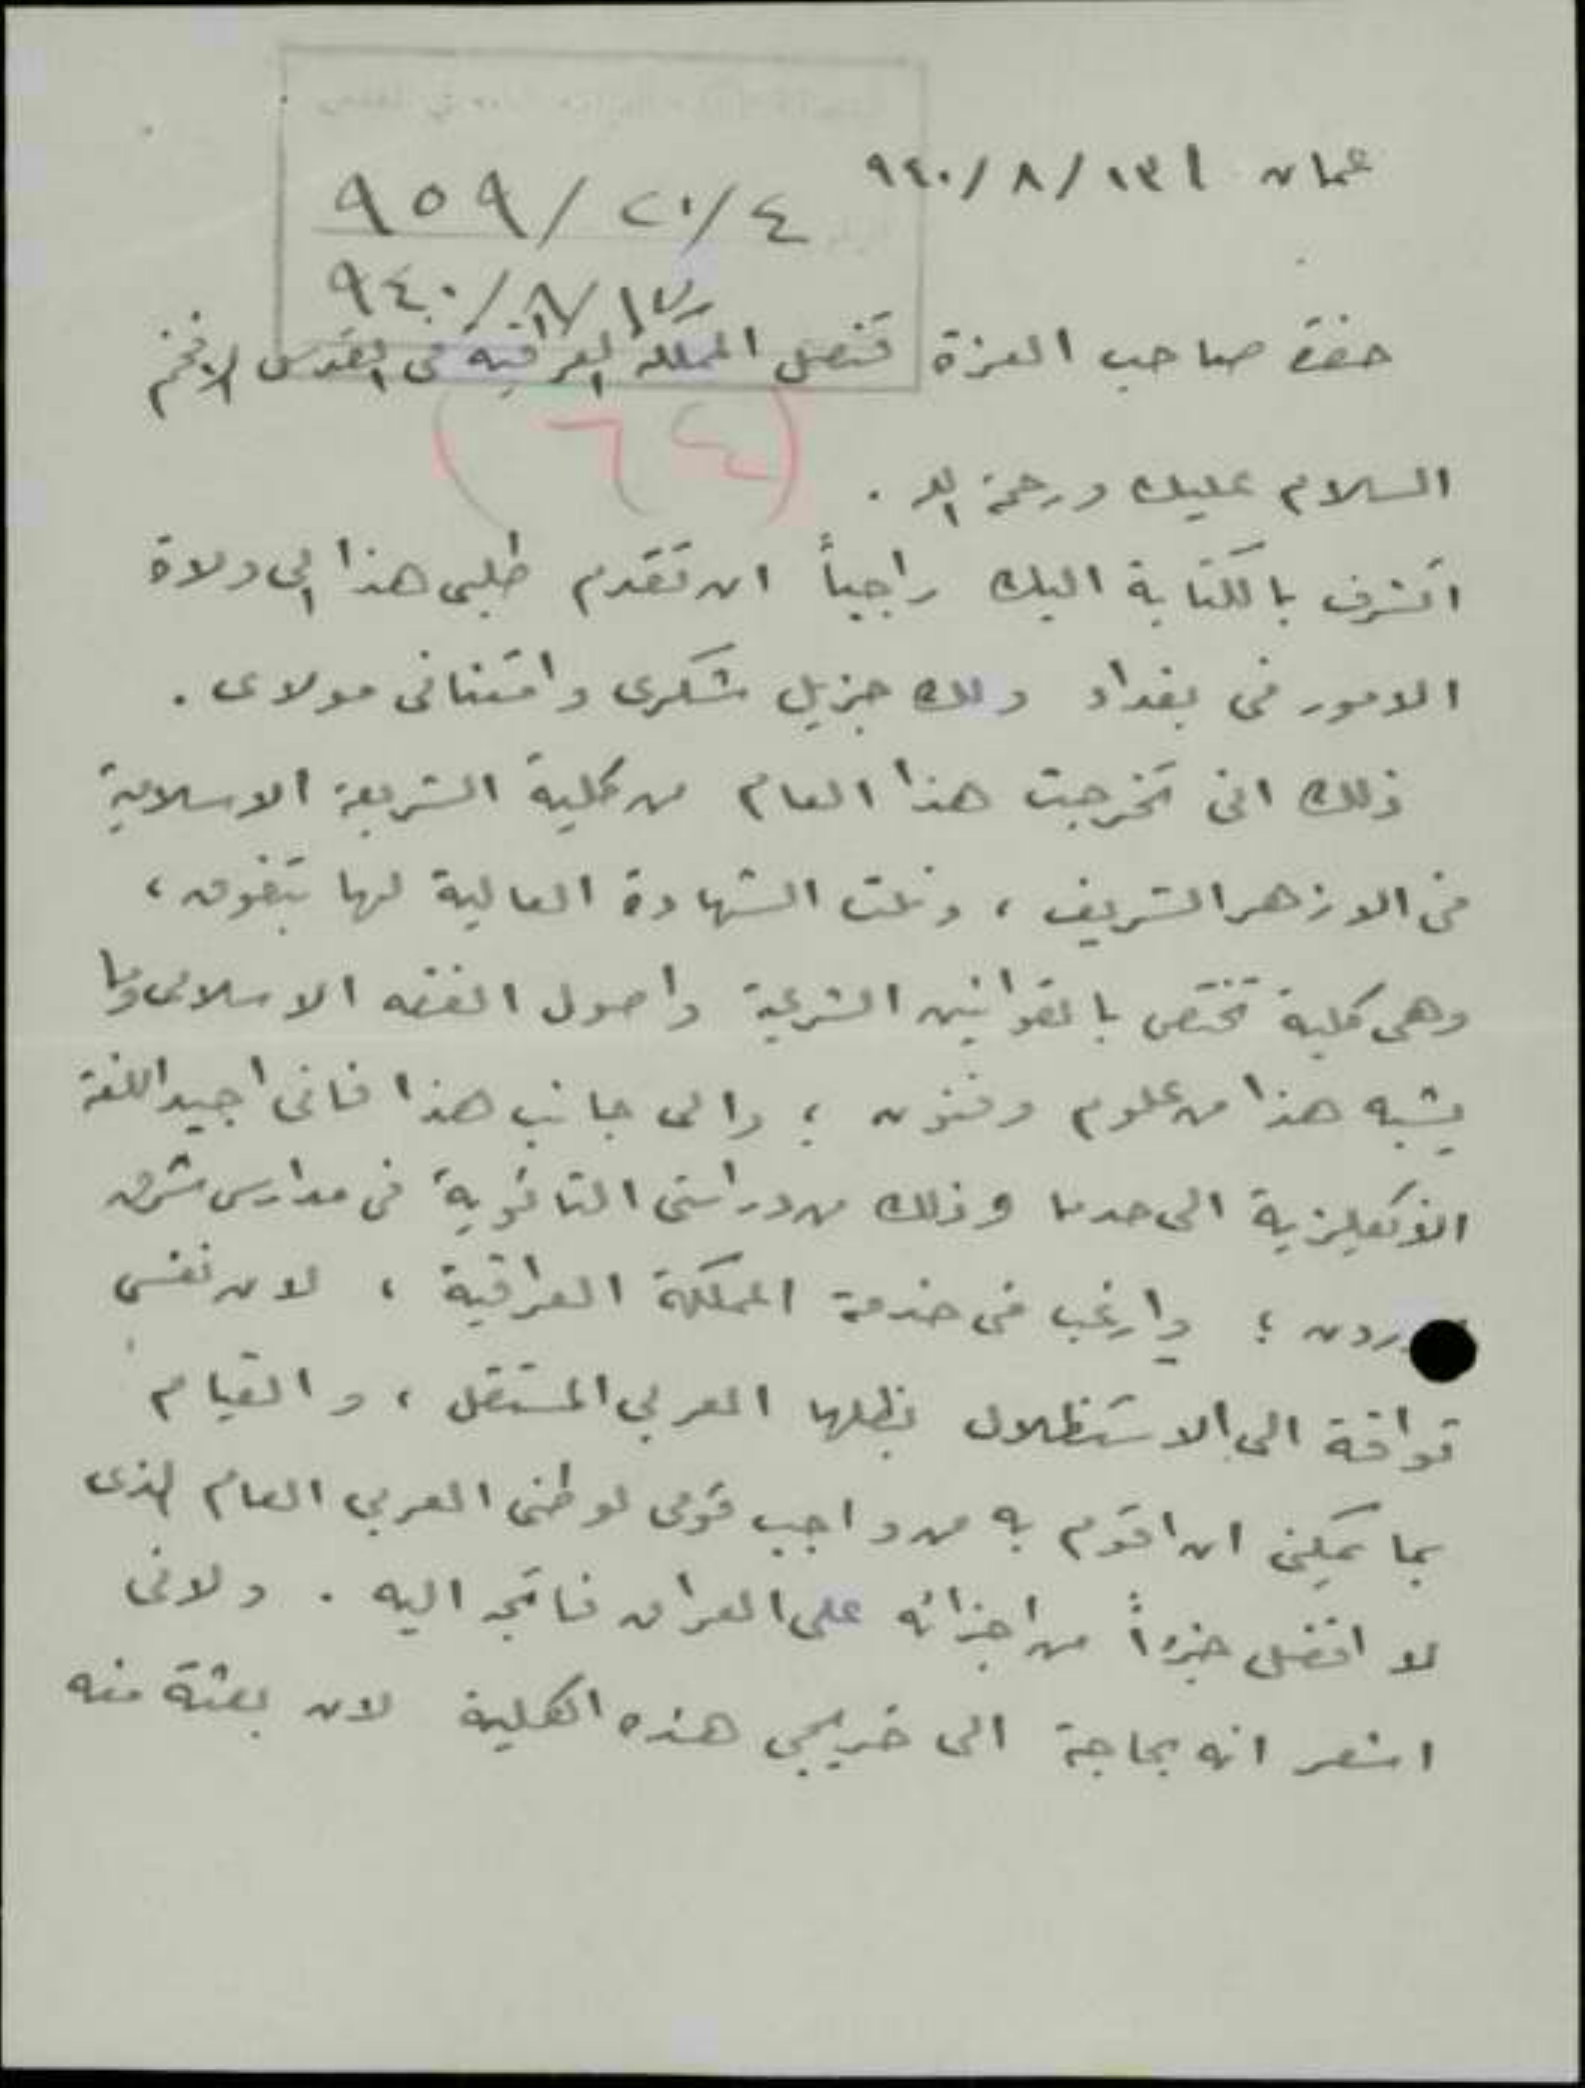 عمان ١٣١/٨/٩٤٠
٩٥٩/٢٠/٤
٩٤٠/٨/١٧
حضرة صاحب العزة قنصل المملكة العراقية في القدس الافخم
(٦٤)
السلام عليك ورحمة الله .
اتشرف بالكتابة اليك راجياً ان تقدم طلبى هذا الى ولاة
الامور فى بغداد ولك جزيل شكرى وامتنانى مولاى .
ذلك انى تخرجت هذا العام من كلية الشريعة الاسلامية
فى الازهر الشريف ، ونلت الشهادة العالية لها بتفوق ،
وهى كلية تختص بالقوانين الشرعية واصول الفقه الاسلامى وما
يشبه هذا من علوم وفنون ؛ والى جانب هذا فانى اجيد اللغة
الانكليزية الى حد ما وذلك من دراستى الثانوية فى مدارس شرق
ردن ؛ وارغب فى خدمة المملكة العراقية ، لان نفسى
تواقة الى الاستظلال بظلها العربي المستقل ، والقيام
بما يمكن ان اقوم به من واجب قومى لوطنى العربي العام الذى
لا افضل جزءاً من اجزائه على العراق فاتجه اليه . ولانى
اشعر انه بحاجة الى خريجي هذه الكلية لان بعثة منه